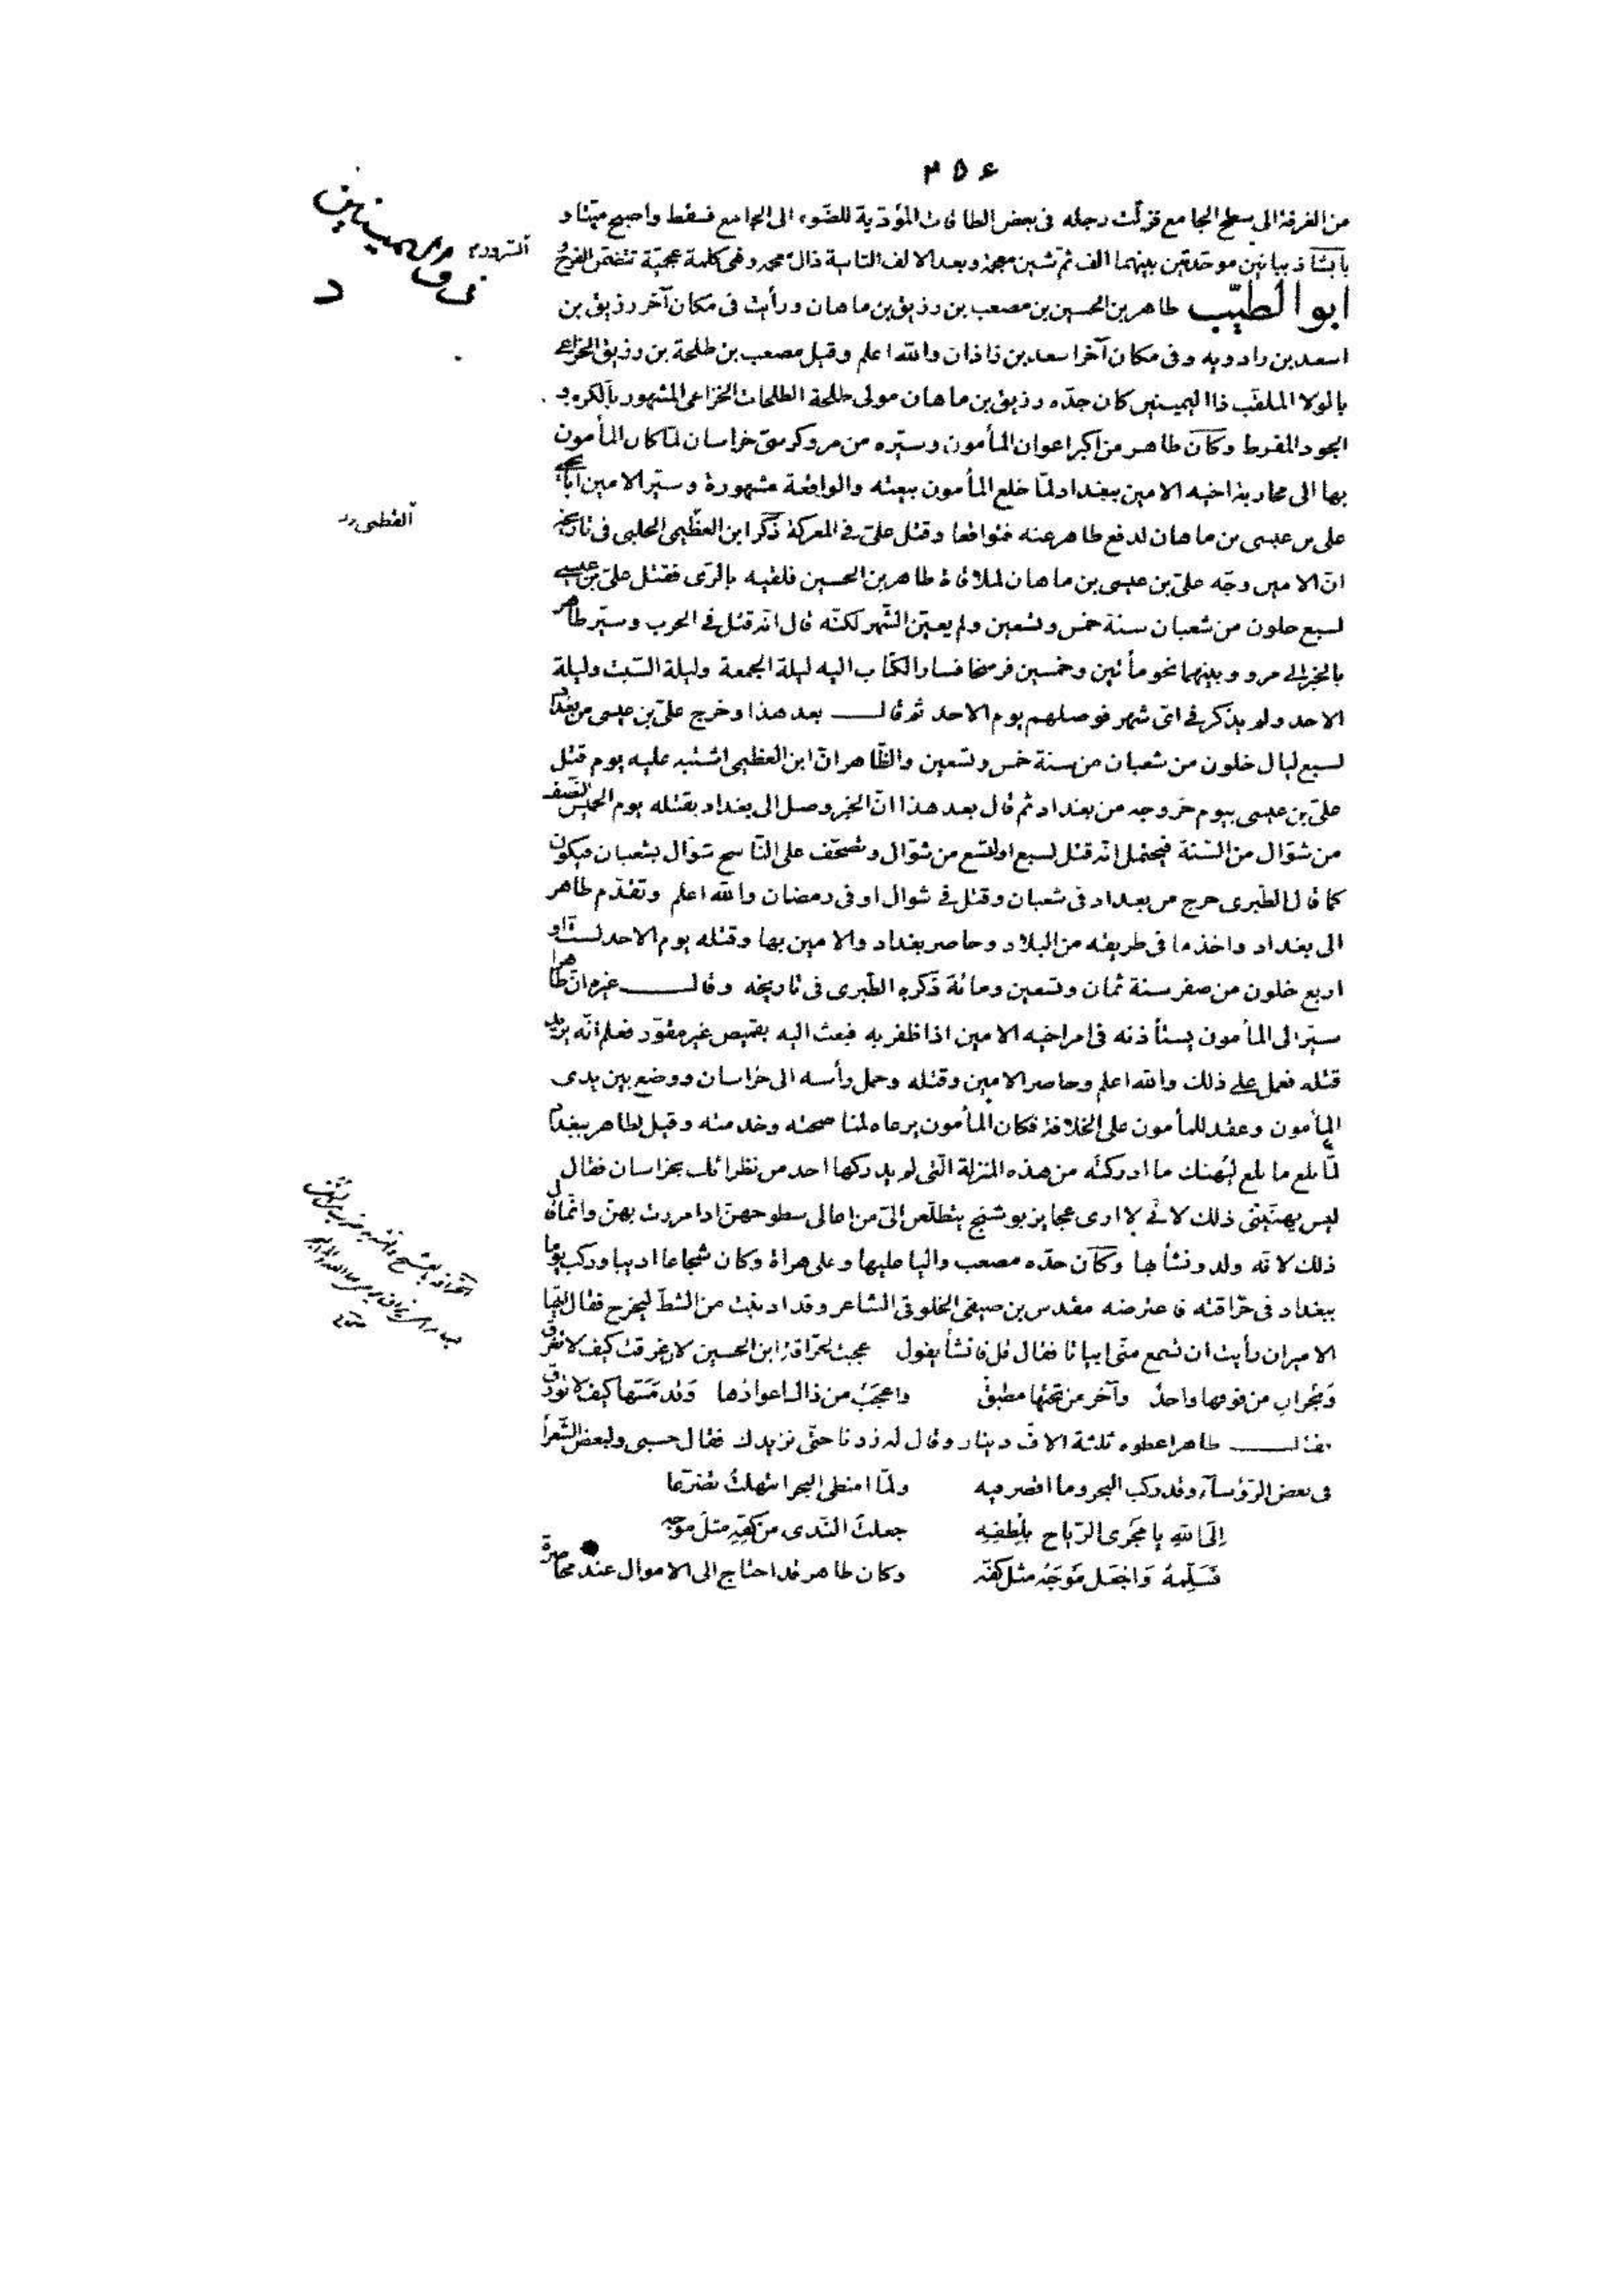 ٣٥٤
من الغرفة الى سطح الجامع فزلّت رجله فى بعض الطاقات المؤدّية للضّوء الى الجامع فسقط واصبح ميّتا و
بابشاذ ببائين موحّدتين بينهما الف ثم شين معجمة وبعد الالف الثانية ذال معجمة وهى كلمة عجميّة تتضمّن الفرح
ابو الطيّب طاهر بن الحسين بن مصعب بن رزيق بن ماهان ورأيت فى مكان آخر رزيق بن
اسعد بن رادويه وفى مكان آخر اسعد بن زاذان والله اعلم وقيل مصعب بن طلحة بن رزيق الخزاعى
بالولا الملقّب ذا اليمينين كان جدّه رزيق بن ماهان مولى طلحة الطلحات الخزاعى المشهور بالكرم و
الجود المفرط وكان طاهر من اكبر اعوان المأمون وسيّره من مرو كرسىّ خراسان لمّا كان المأمون
بها الى محاربة اخيه الامين ببغداد لمّا خلع المأمون بيعته والواقعة مشهورة وسيّر الامين ابا يحيى
على بن عيسى بن ماهان لدفع طاهر عنه فتواقعا وقتل علىّ فى المعركة ذكر ابن العظيمى الحلبى فى تاريخه
انّ الامين وجّه علىّ بن عيسى بن ماهان لملاقاة طاهر بن الحسين فلقيه بالرّى فقتل علىّ بن عيسى
لسبع خلون من شعبان سنة خمس وتسعين ولم يعيّن الشّهر لكنّه قال انّه قتل فى الحرب وسيّر طاهر
بالخبر الى مرو وبينهما نحو مأتين وخمسين فرسخا فسار الكتاب اليه ليلة الجمعة وليلة السّبت وليلة
الاحد ولم يذكر فى اىّ شهر فوصلهم يوم الاحد ثم قال بعد هذا وخرج علىّ بن عيسى من بغداد
لسبع ليال خلون من شعبان من سنة خمس وتسعين والظّاهر انّ ابن العظيمى اشتبه عليه يوم قتل
علىّ بن عيسى بيوم خروجه من بغداد ثم قال بعد هذا انّ الخبر وصل الى بغداد بقتله يوم الخميس النّصف
من شوّال من السّنة فيحتمل انّه قتل لسبع او لتسع من شوّال وتصحّف على النّاسخ شوّال بشعبان فيكون
كما قال الطّبرى خرج من بغداد فى شعبان وقتل فى شوال او فى رمضان والله اعلم وتقدّم طاهر
الى بغداد واخذ ما فى طريقه من البلاد وحاصر بغداد والامين بها وقتله يوم الاحد لستّ او
اربع خلون من صفر سنة ثمان وتسعين ومائة ذكره الطّبرى فى تاريخه وقال غيره انّ طاهرا
سيّر الى المأمون يستأذنه فى امر اخيه الامين اذا ظفر به فبعث اليه بقميص غير مقوّر فعلم انّه يريد
قتله فعمل على ذلك والله اعلم وحاصر الامين وقتله وحمل رأسه الى خراسان ووضع بين يدى
المأمون وعقد للمأمون على الخلافة فكان المأمون يرعاه لمناصحته وخدمته وقيل لطاهر ببغداد
لمّا بلغ ما بلغ ليهنك ما ادركته من هذه المنزلة الّتى لم يدركها احد من نظرائك بخراسان فقال
ليس يهنّينى ذلك لانّى لا ارى عجايز بوشنج يتطلّعن الىّ من اعالى سطوحهنّ اذا مررت بهنّ وانّما قال
ذلك لانّه ولد ونشأ بها وكان جدّه مصعب واليا عليها وعلى هراة وكان شجاعا اديبا وركب يوما
ببغداد فى حرّاقته فاعترضه مقدس بن صيفى الخلوقى الشاعر وقد ادنيت من الشطّ ليخرج فقال ايّها
الامير ان رأيت ان تسمع منّى ابياتا فقال قل فانشأ يقول عجبت لحرّاقة ابن الحسين لا غرقت كيف لا تغرق
وبحران من فوقها واحد وآخر من تحتها مطبق واعجب من ذاك اعوادها وقد مسّها كيف لا تورق
فقال طاهر اعطوه ثلثة الاف دينار وقال له زدنا حتّى نزيدك فقال حسبى ولبعض الشّعرأ
فى بعض الرّؤسآء وقد ركب البحر وما اقصر فيه ولمّا امتطى البحر ابتهلت تضرّعا
الى الله يا مجرى الرّياح بلطفه جعلت النّدى من كفّه مثل موجه
فسلّمه واجعل موجه مثل كفّه وكان طاهر قد احتاج الى الاموال عند محاصرة